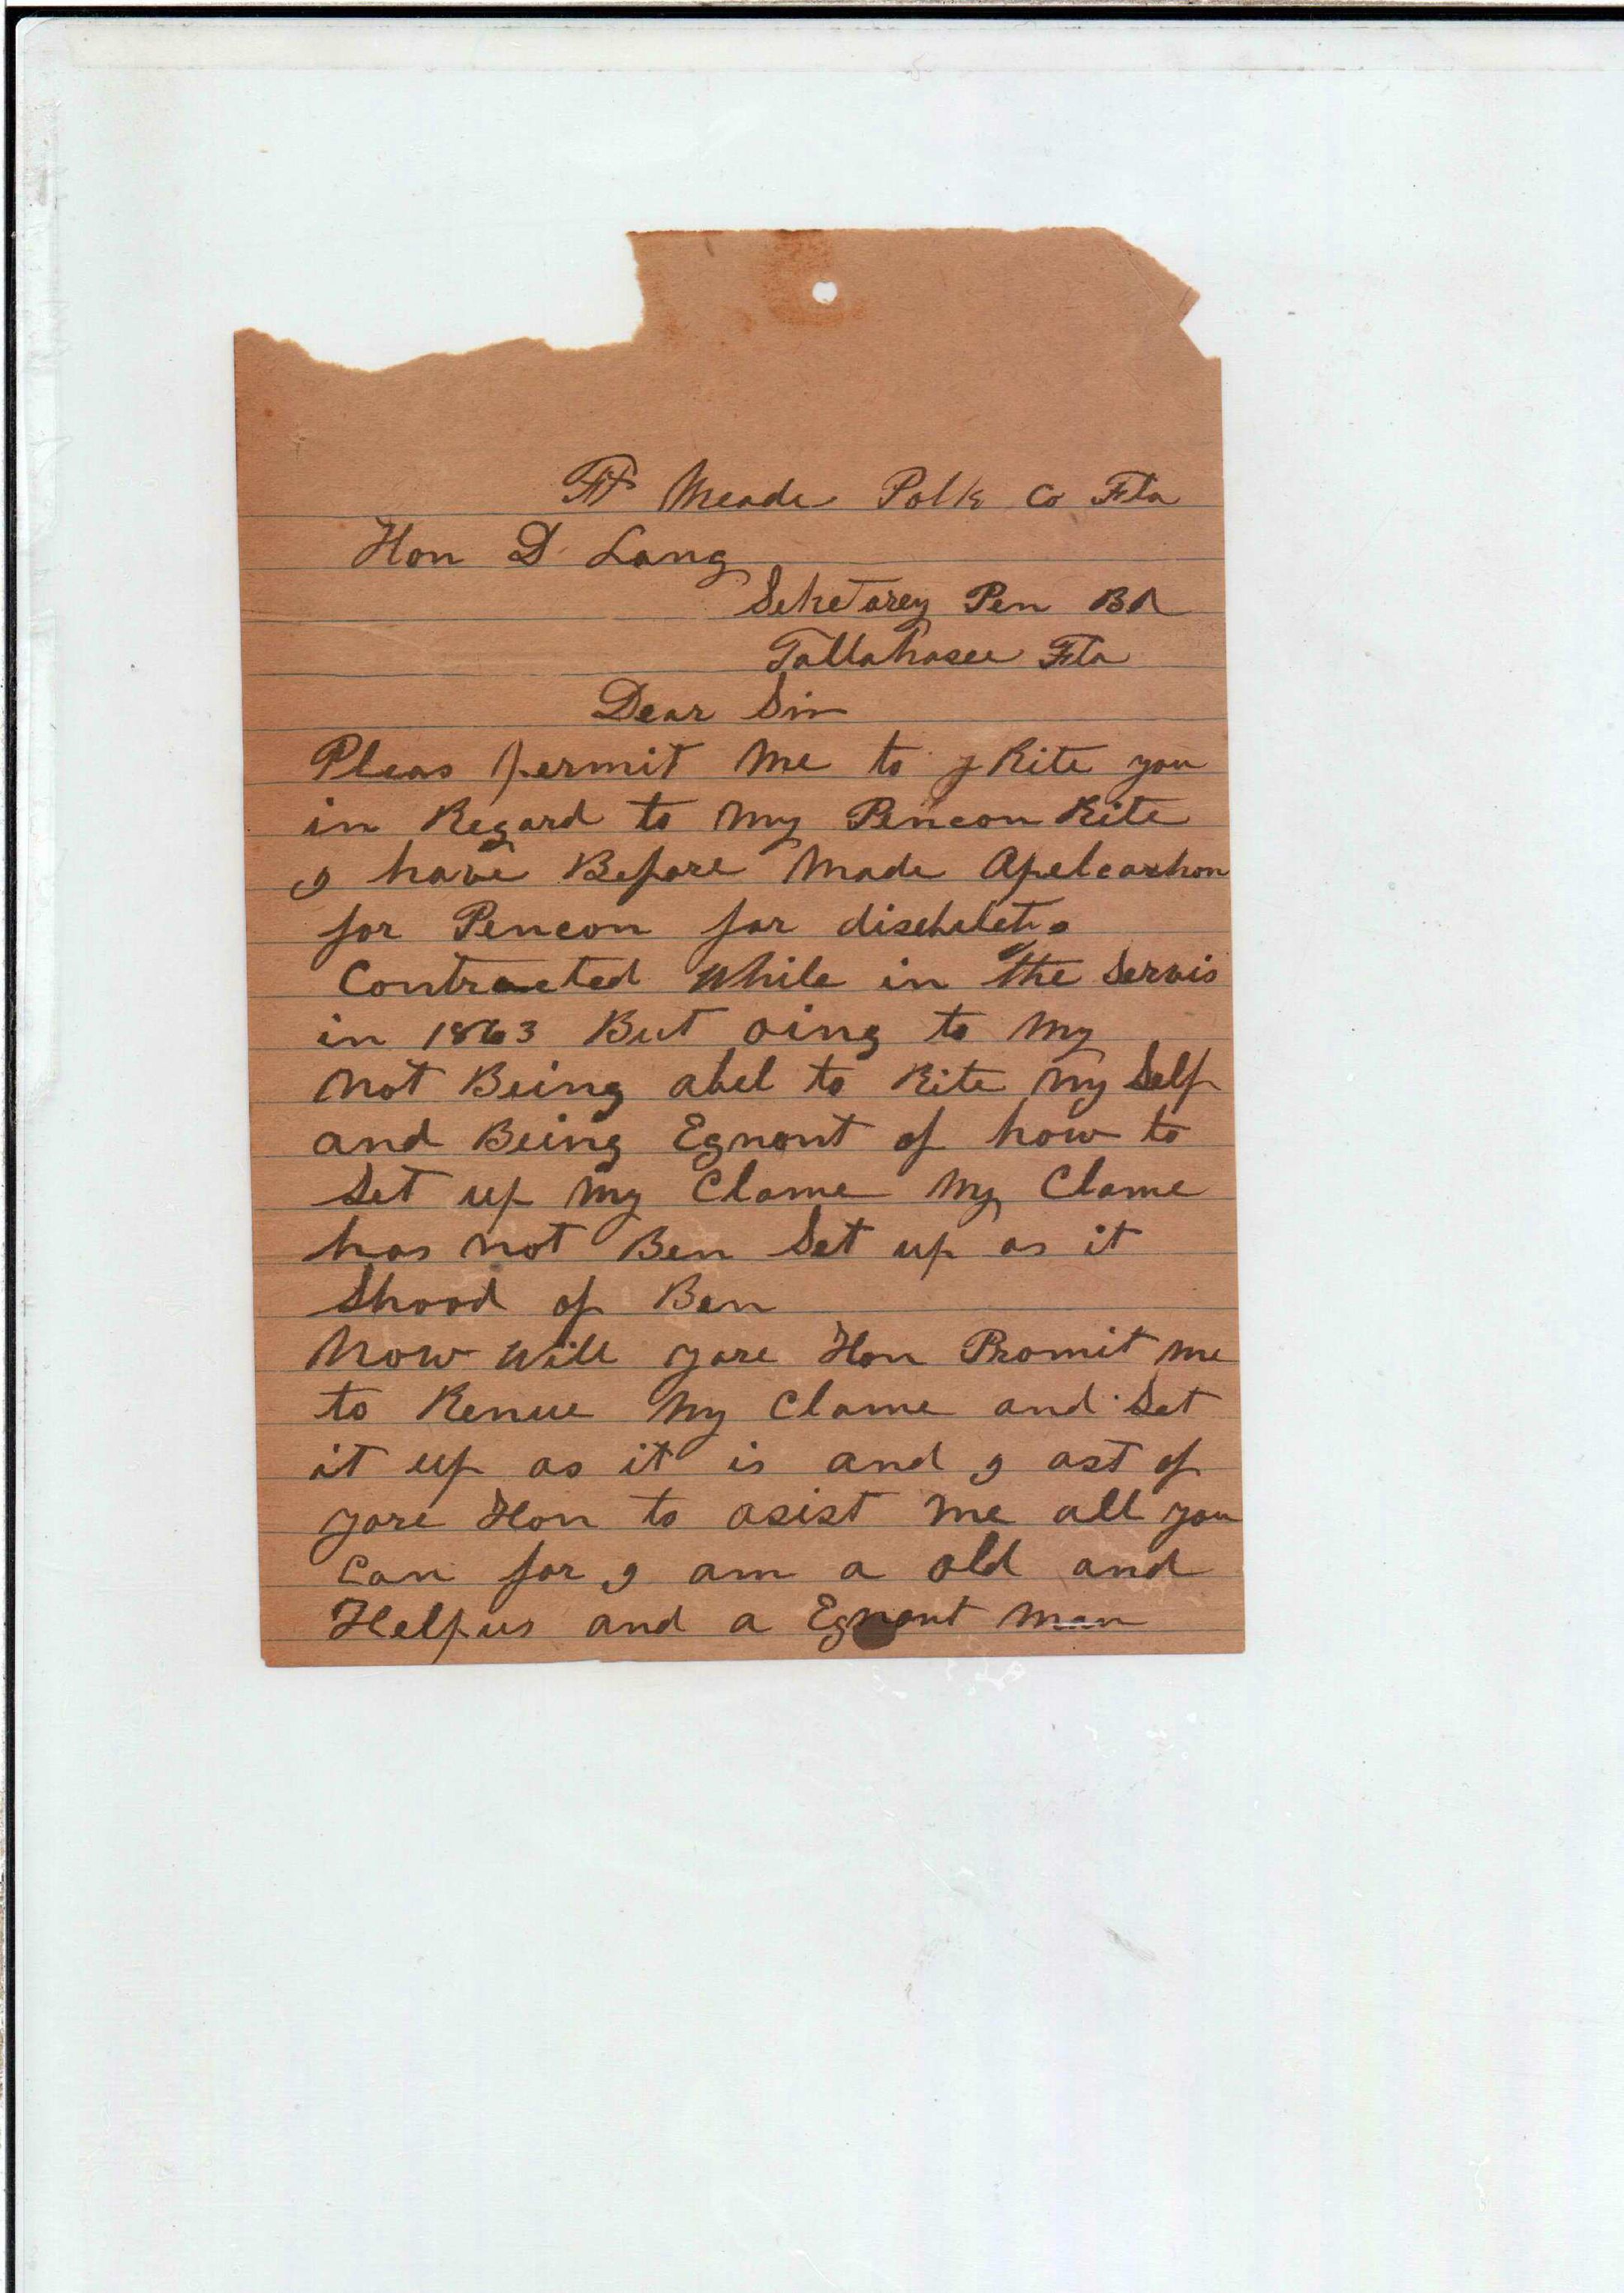 Ft Meade Polk Co Fla
Hon D Lang
Seketarey Pen Bd
Tallahasee Fla
Dear Sir
Pleas permit me to Rite you
in Regard to my Pencon Rite
I have Before made Apelcashon
for Pencon for dischilets
Contracted While in the Servis
in 1863 But oing to my
not Being abel to Rite my Self
and Being Egnont of how to
Set up my Clame my Clame
has not Ben Set up as it
Shood of Ben
Now Will yore Hon Promit me
to Renue my Clame and Set
it up as it is and I ast of
yore Hon to asist me all you
Can for I am a old and
Helpus and a Egnont man